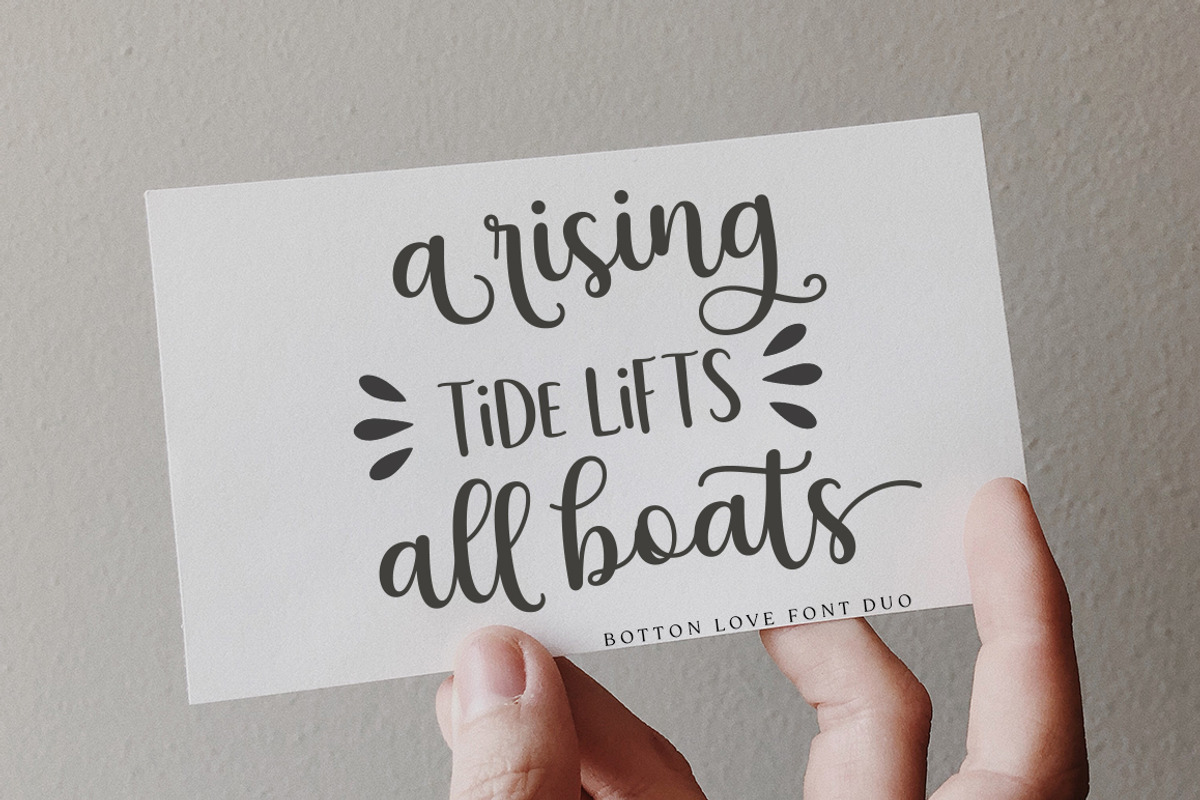 a rising
TiDE LiFTS
all boats
BOTTON LOVE FONT DUO